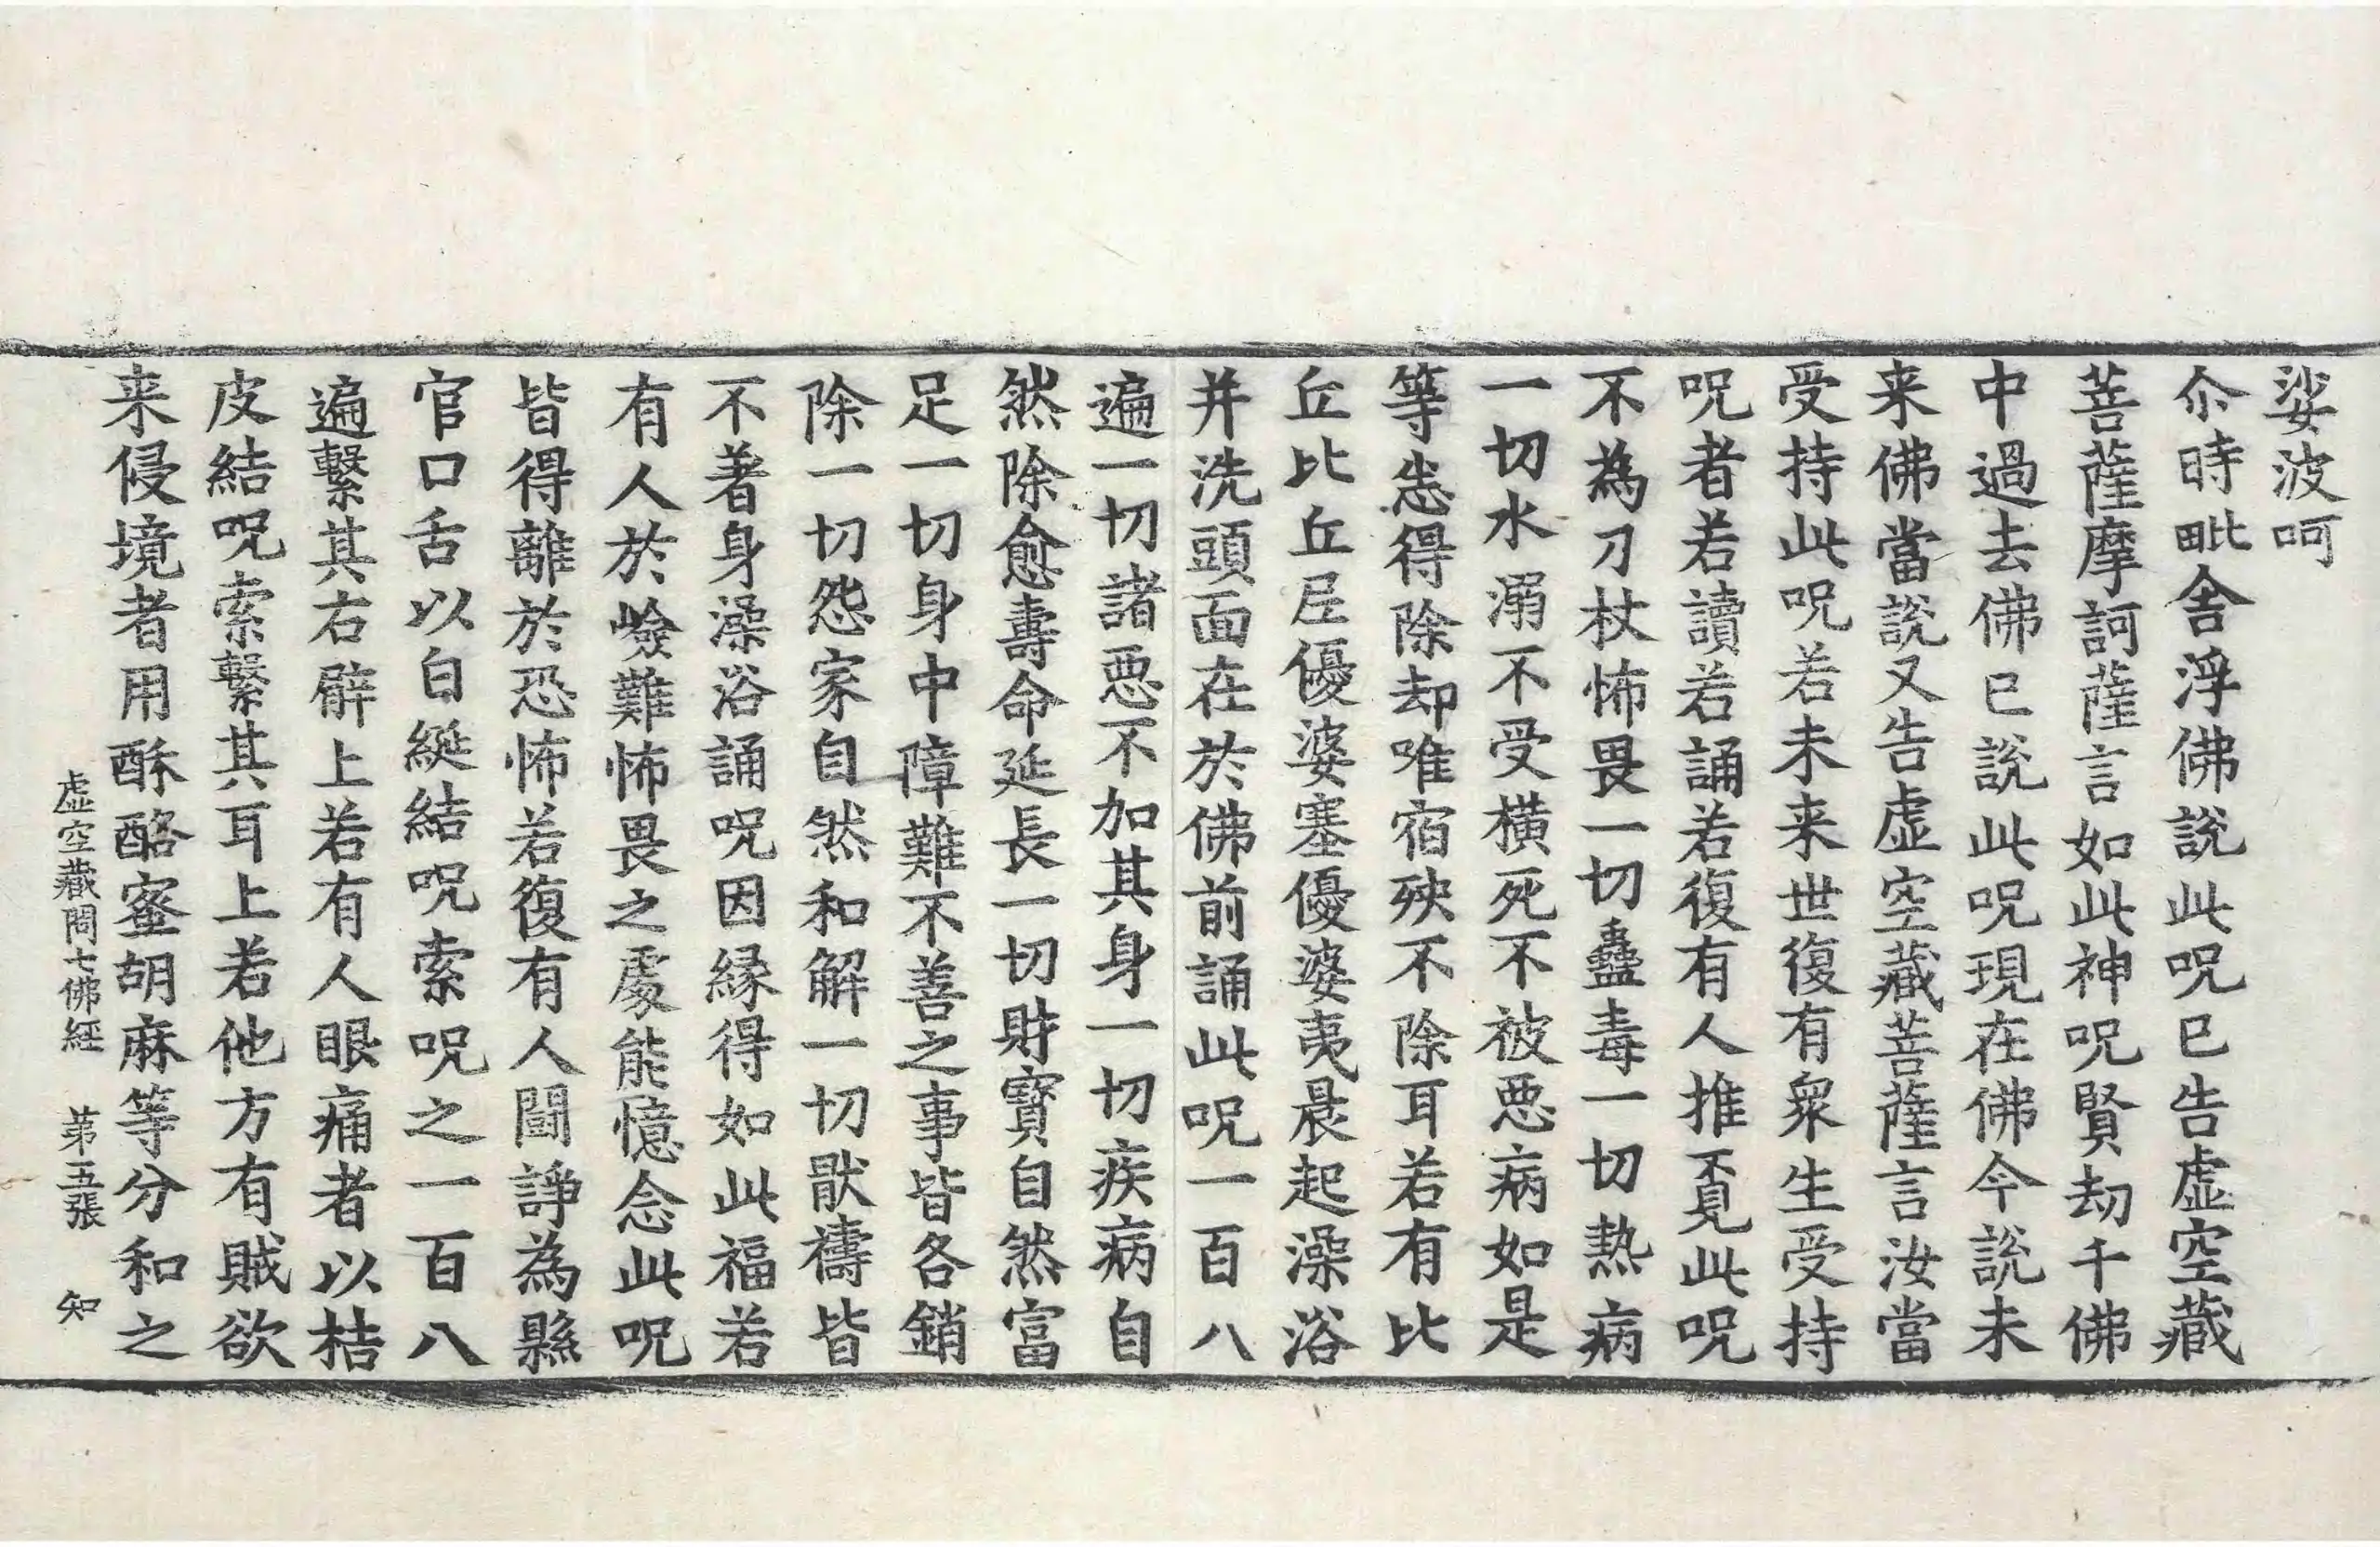 娑波呵
尒時毗舍浮佛說此呪已告虛空藏
菩薩摩訶薩言如此神呪賢劫千佛
中過去佛已說此呪現在佛今說未
来佛當說又告虛空藏菩薩言汝當
受持此呪若未来世復有衆生受持
呪者若讀若誦若復有人推覔此呪
不為刀杖怖畏一切蠱毒一切熱病
一切水溺不受橫死不被惡病如是
等恙得除却唯宿殃不除耳若有比
丘比丘尼優婆塞優婆夷晨起澡浴
并洗頭面在於佛前誦此呪一百八
遍一切諸惡不加其身一切疾病自
然除愈壽命延長一切財寶自然富
足一切身中障難不善之事皆各銷
除一切怨家自然和解一切猒禱皆
不著身澡浴誦呪因緣得如此福若
有人於嶮難怖畏之處能憶念此呪
皆得離於恐怖若復有人鬪諍為縣
官口舌以白綖結呪索呪之一百八
遍繫其右臂上若有人眼痛者以桔
皮結呪索繫其耳上若他方有賊欲
来侵境者用酥酪蜜胡麻等分和之
虛空藏問七佛經 第五張 知